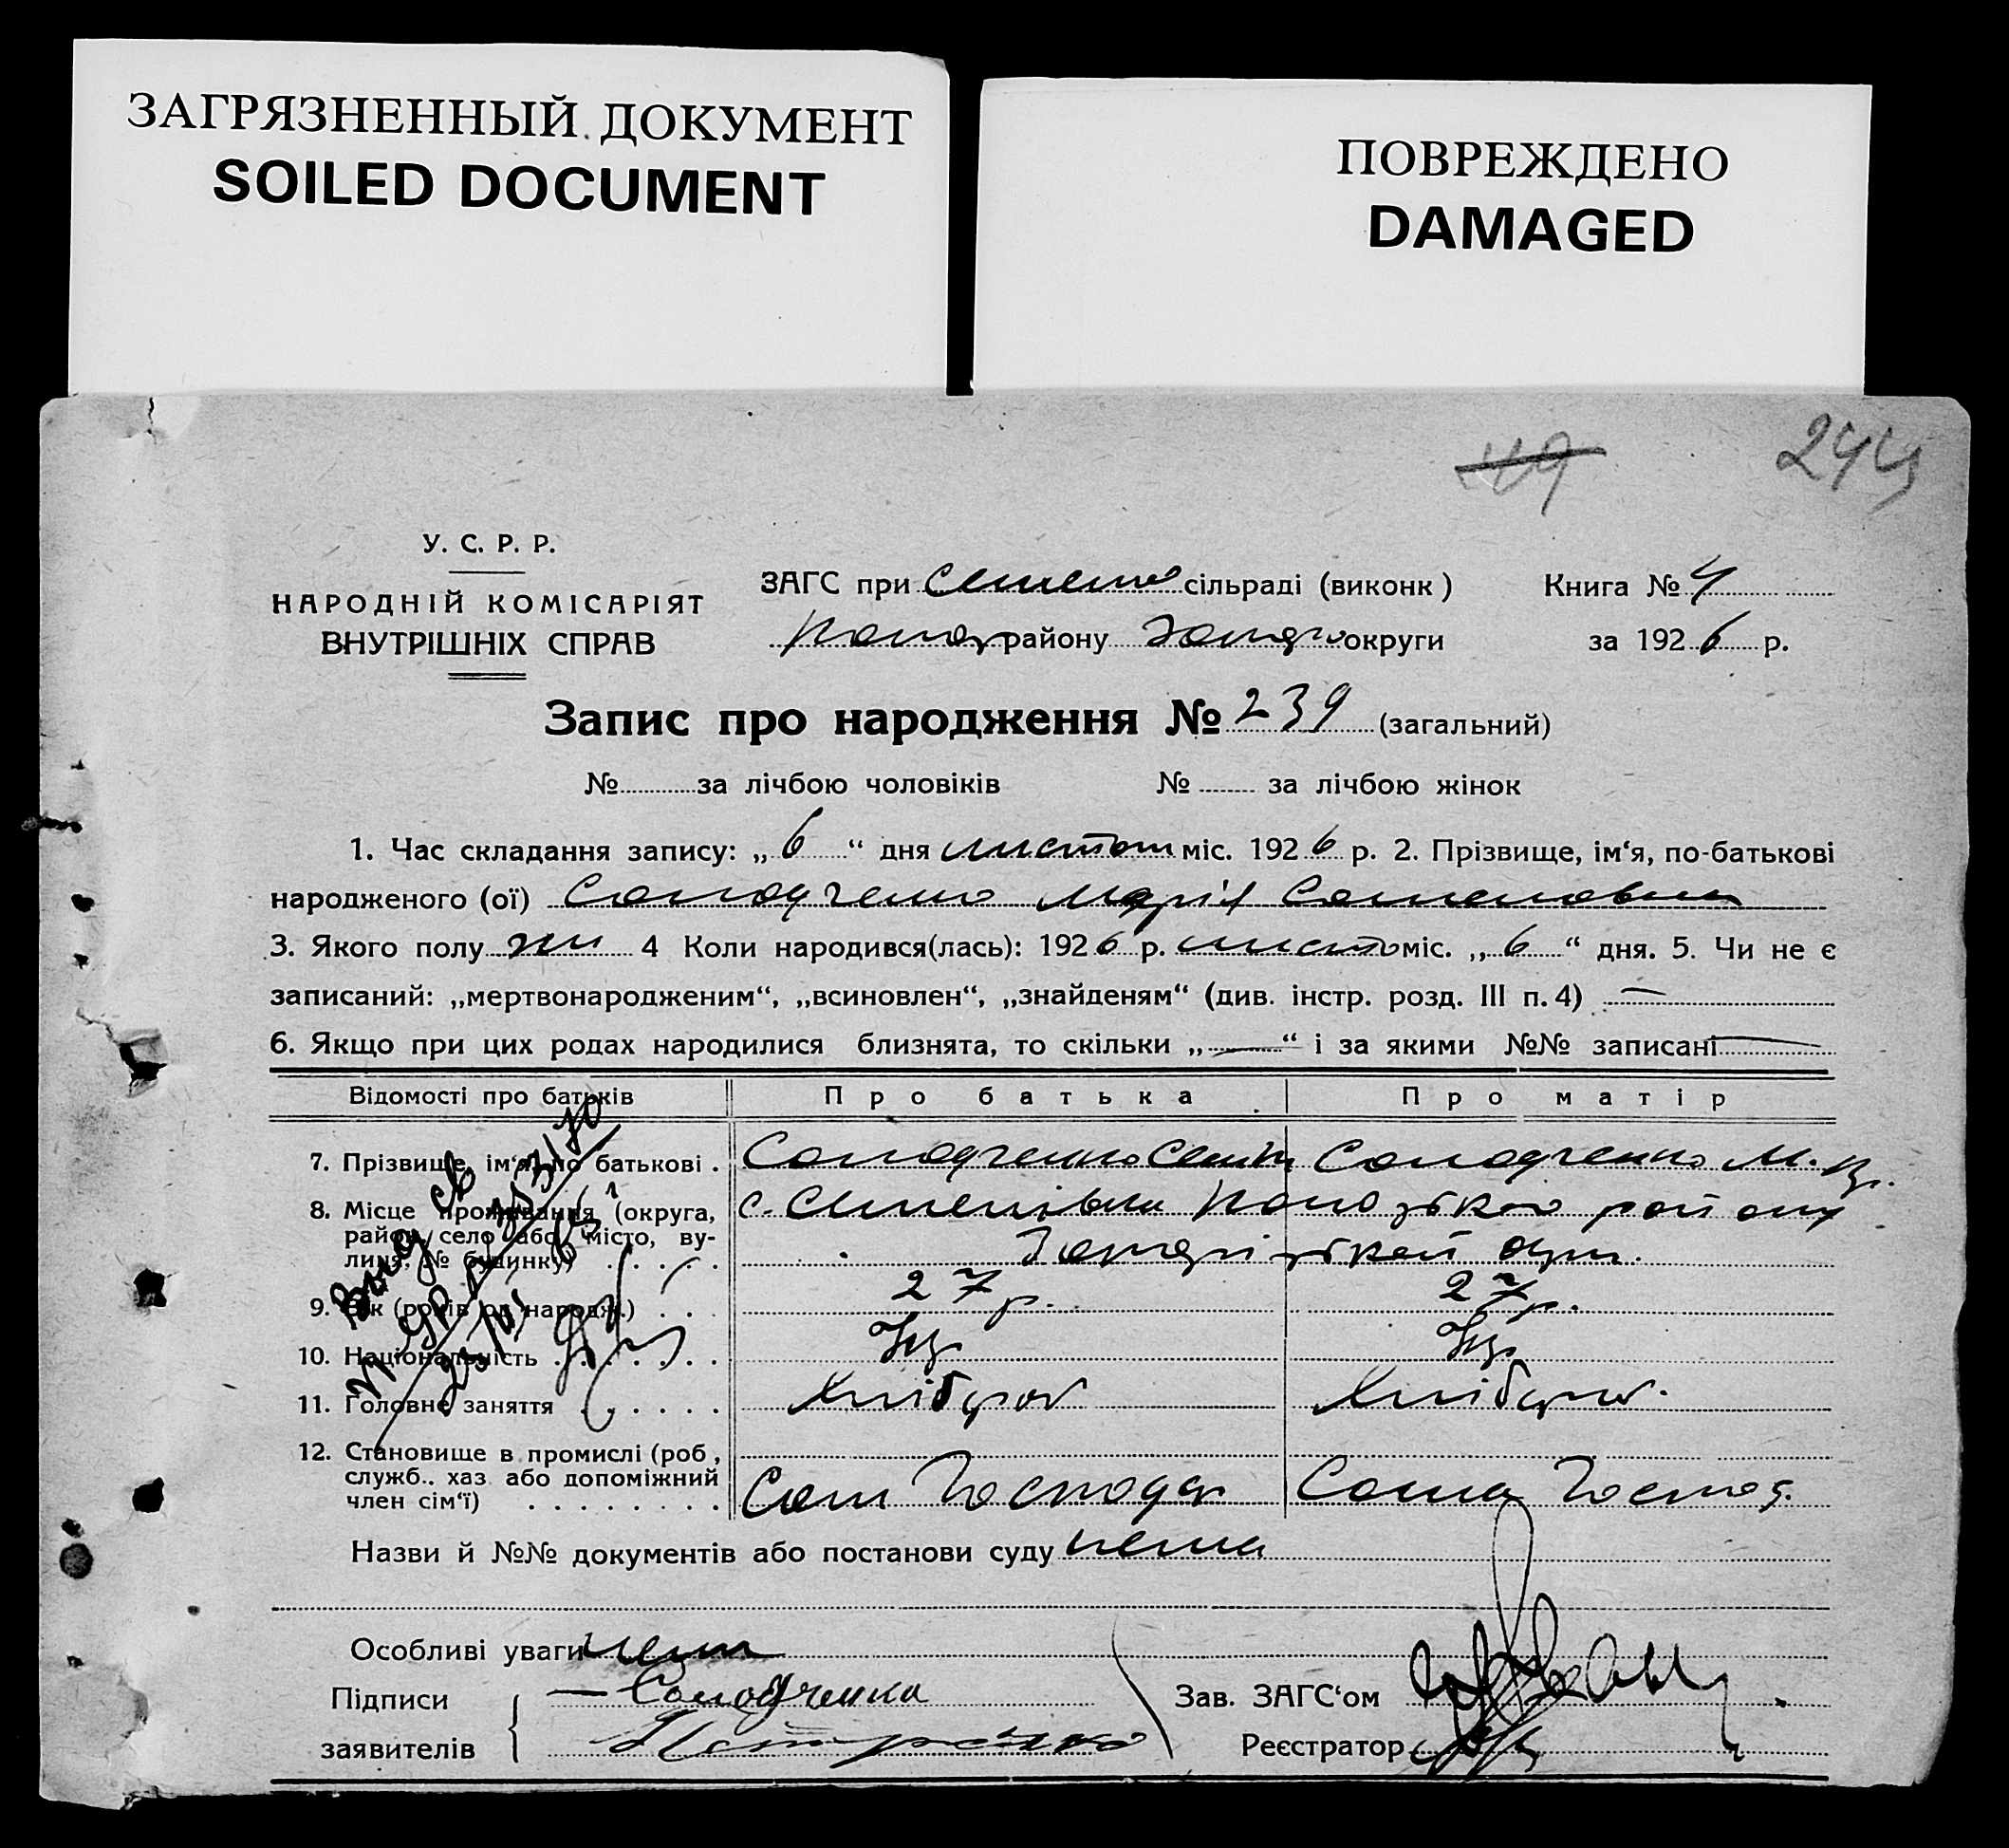 ЗАГРЯЗНЕННЫЙ ДОКУМЕНТ
SOILED DOCUMENT
ПОВРЕЖДЕНО
DAMAGED
119 244
У. С. Р. Р.
НАРОДНІЙ КОМІСАРІЯТ
ВНУТРІШНІХ СПРАВ
ЗАГС при сільраді (виконк) Книга № 4
району округи за 1926 р.
Запис про народження № 239 (загальний)
№ за лічбою чоловіків № за лічбою жінок
1. Час складання запису: „6“ дня листоп міс. 1926 р. 2. Прізвище, ім‘я, по-батькові
народженого (ої) Солодченко Марія Семеновна
3. Якого полу жін 4 Коли народився(лась): 1926 р. листо міс. „6“ дня. 5. Чи не є
записаний: „мертвонародженим“, „всиновлен“, „знайденям“ (див. інстр. розд. III п. 4) —
6. Якщо при цих родах народилися близнята, то скільки „—“ і за якими №№ записані —
Відомості про батьків Про батька Про матір
7. Прізвище, ім‘я, по батькові . Солодченко Семен Солодченко М.
8. Місце проживання (округа,
район, село або місто, ву-
лиця, № будинку) . . . . . с. району
9. Вік (років од народж.) . . . 27 р. 27 р.
10. Національність . . . . . . . Укр Укр
11. Головне заняття . . . . . . Хлібороб Хлібороб.
12. Становище в промислі (роб,
служб.. хаз або допоміжний
член сім‘ї) . . . . . . . . Сам Господар Сама Господ.
Назви й №№ документів або постанови суду нема
Особливі уваги нема
Підписи — Солодченко
заявителів Петренко
Зав. ЗАГС‘ом
Реєстратор